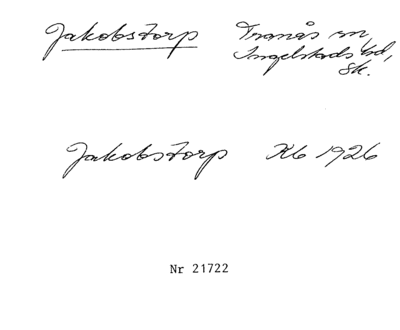 Jakobstorp Tranås sn,
Ingelstads hd,
Sk.
Jakobstorp Kb 1926
Nr 21722